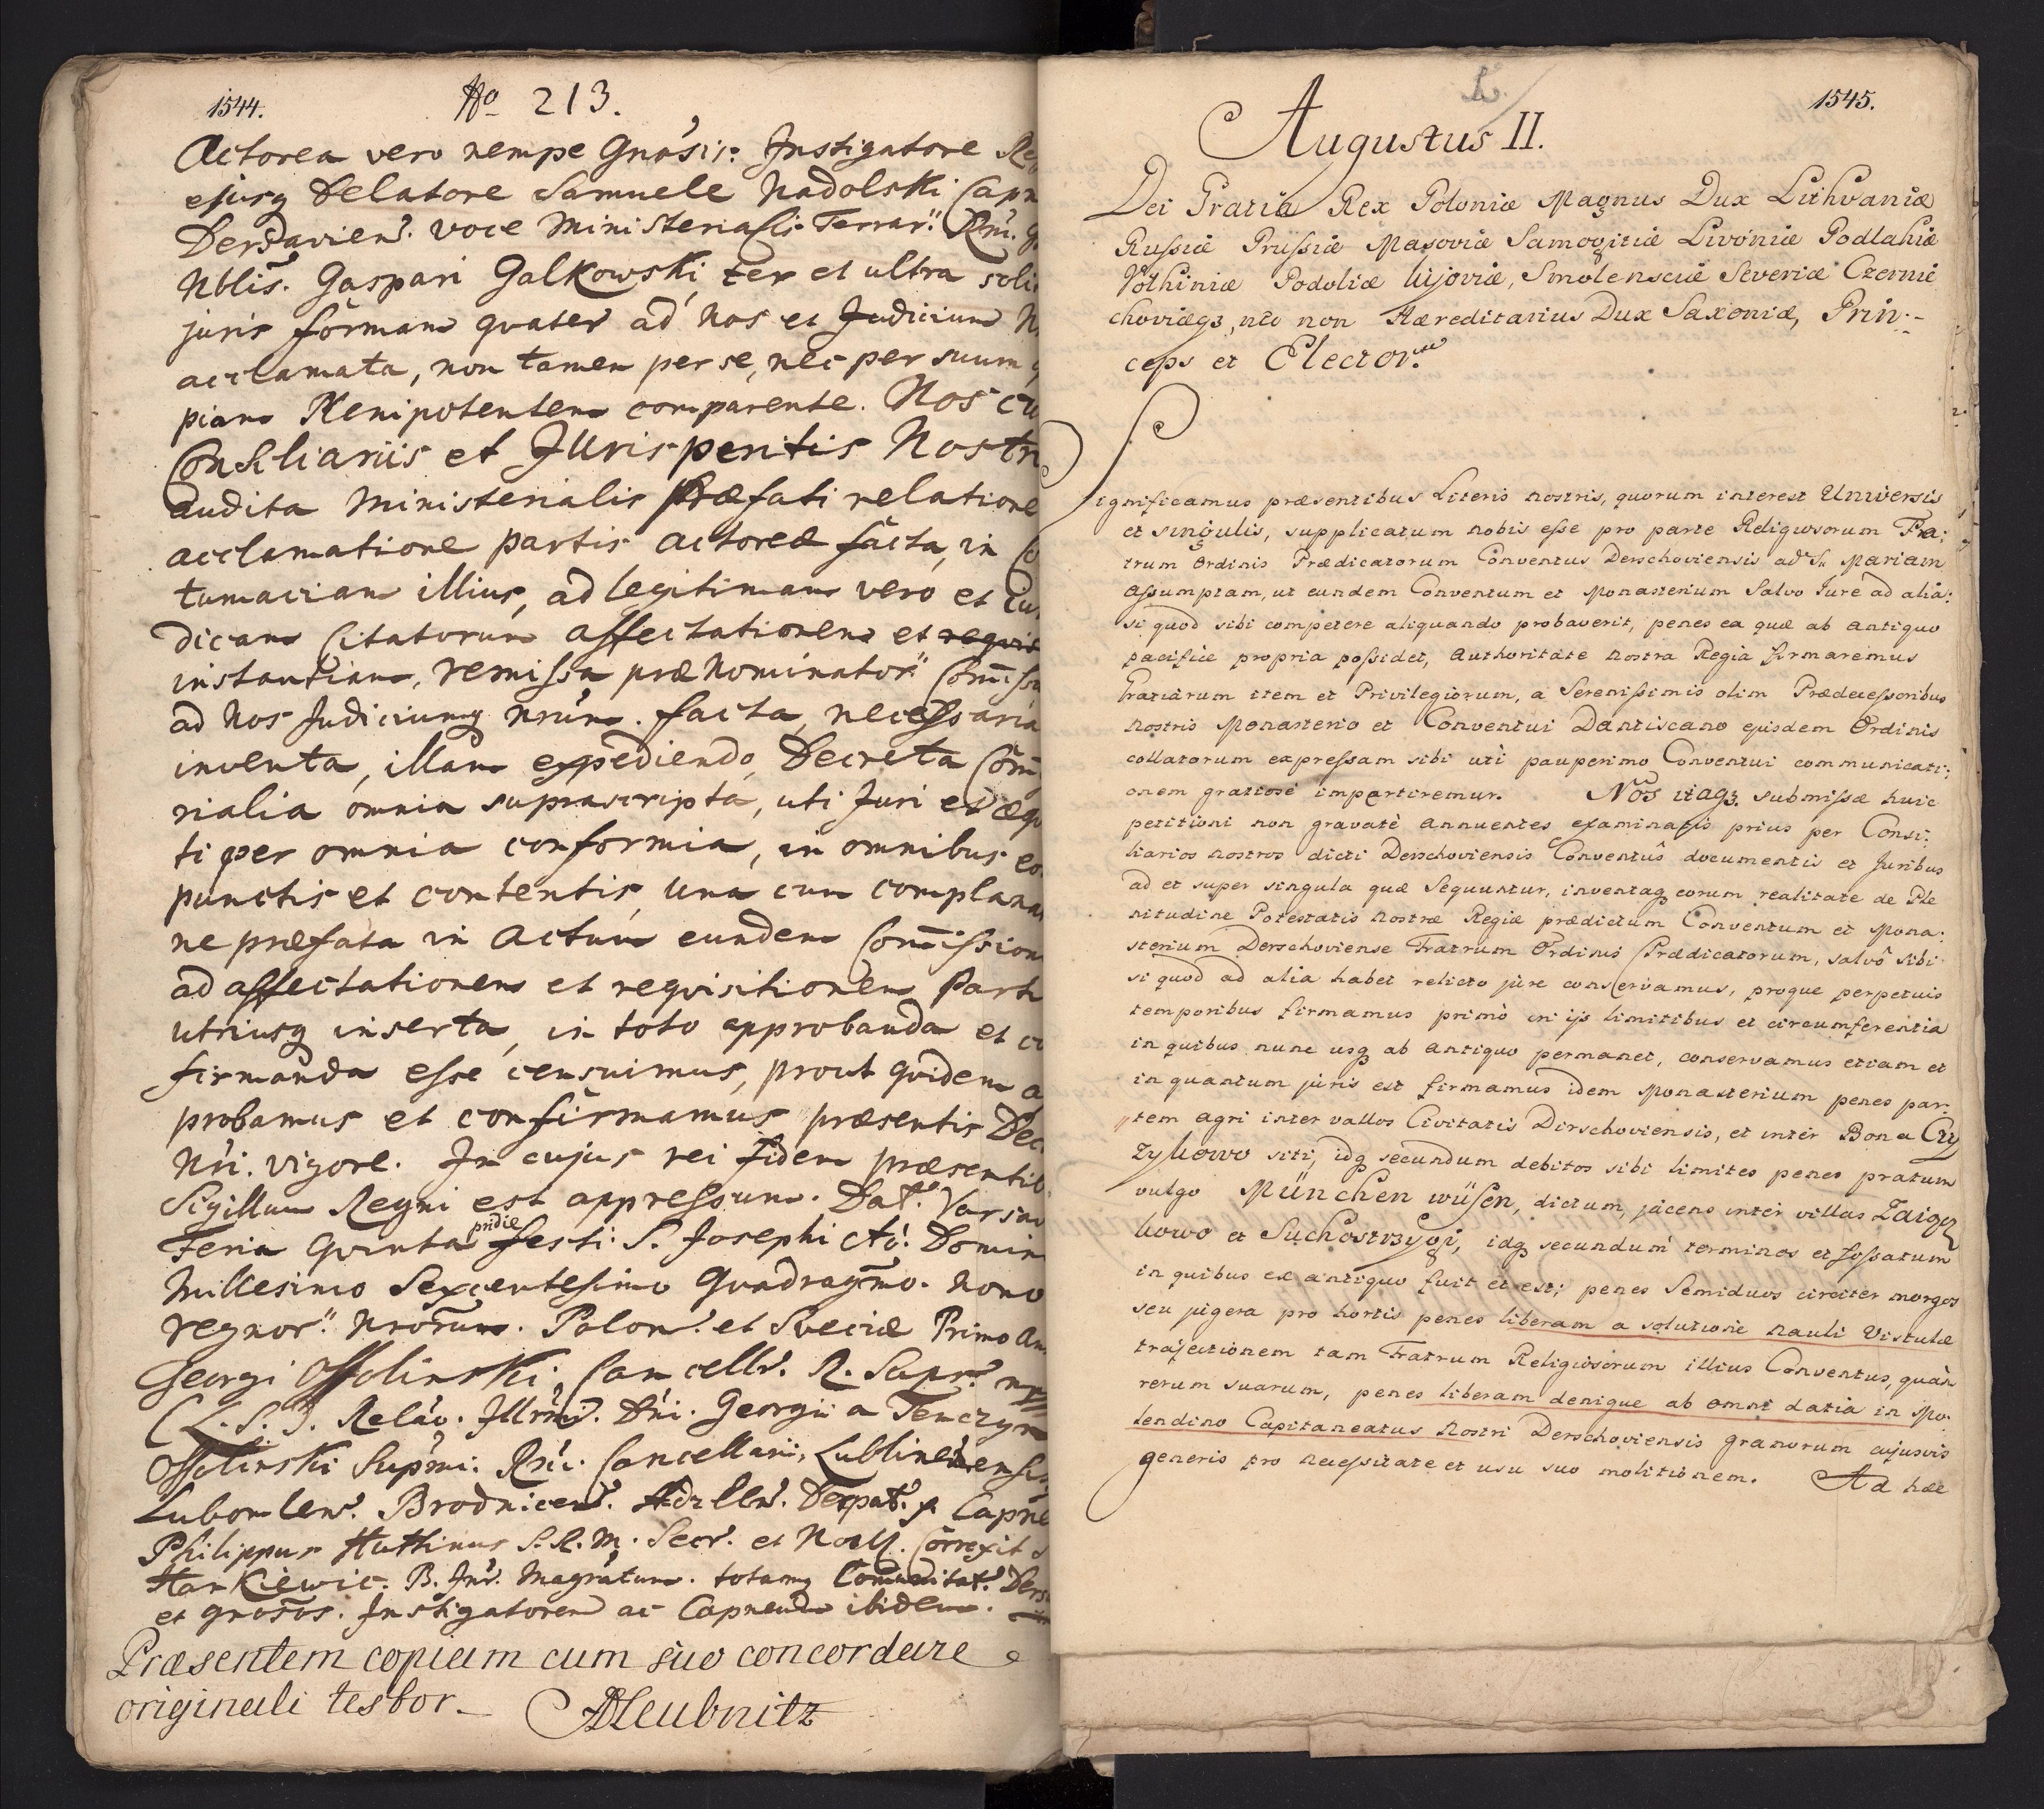 1544.
No 213.
Actorea vero nempe Gnosis: Instigatore
ejusq Delatore Samuele Nadolski Capn
Derszavien. voce Ministerialis Terrar. Rni.
Nblis. Gaspari Galkowski, ter et ultra
juris formam quater ad Nos et Judicium
acclamata, non tamen per se, nec per suum
piam Plenipotentem comparente. Nos
Consiliariis et Jurisperitis Nostri
audita Ministerialis præfati relatione
acclamatione partis actoreæ facta, in
tumaciam illius, ad legitimam vero et
dicam Citatorum affectationem et
instantiam, remissa prænominator
ad Nos Judiciumq nrum. facta, necessaria
inventa, illam expediendo, Decreta
rialia omnia suprascripta, uti Juri et
ti per omnia conformia, in omnibus
punctis et contentis, una cum complana
ne præfata in actum eundem Commission
ad affectationem et requisitionem Part
utriusq inserta, in toto approbanda et
firmanda esse censuimus, prout quidem
probamus et confirmamus præsentis
Nri. vigore. In cujus rei fidem præsentib
Sigillum Regni est appressum. Dat. Varsav
Feria Quinta pridie festi S. Josephi Ao: Domin
Millesimo Sexcentesimo Quadragmo. Nono
regnor. Nrorum. Polon. et Sveciæ Primo
Georgi Ossolinski Cancellr. R. Supr.
(L.S.) Relao. Illrmi. Dni. Georgii a Tenczyn
Ossolinski Supmi: Rni: Cancellarii, Lublinen
Lubomlen. Brodnicen.
Philippus Huttinus S.R.M. Secr. et Correxit
B. Magratum. totamq
et Gnosos. Instigatorem ac Capneum ibidem.
Præsentem copiam cum suo concordare
originali testor.
1545.
Augustus II.
Dei Gratia Rex Poloniæ Magnus Dux Lithvaniæ
Russiæ Prussiæ Masoviæ Samogitiæ Livoniæ Podlahiæ
Volhiniæ Podoliæ Kijoviæ, Smolensciæ Severiæ Czernie
choviæq3, nec non Hæreditarius Dux Saxoniæ, Prin-
ceps et Elector.
Significamus præsentibus Literis nostris, quorum interest Universis
et singulis, supplicatum nobis esse pro parte Religiosorum Fra:
trum Ordinis Prædicatorum Conventus Derschoviensis ad S. Mariam
Assumptam, ut eundem Conventum et Monasterium Salvo Jure ad alia:
si quod sibi competere aliquando probaverit, penes ea quæ ab antiquo
pacificè propria possidet, authoritate nostra Regia firmaremus
Gratiarum item et Privilegiorum, a Serenissimis olim Prædecessoribus
nostris Monasterio et Conventui Dantiscano ejusdem Ordinis
collatorum expressam sibi uti pauperimo Conventui communicati:
onem gratiosè impartiremur. Nos itaq3. submissæ huic
petitioni non gravatè annuentes examinatis prius per Consi:
liarios nostros dicti Derschoviensis Conventûs documentis et Juribus
ad et super singula quæ Sequuntur, inventaq eorum realitate de Ple
nitudine Potestatis nostræ Regiæ prædictum Conventum et Mona:
sterium Derschoviense Fratrum Ordinis Prædicatorum, salvô sibi
si quod ad alia habet relicto jure conservamus, proque perpetuis
temporibus firmamus primò in ijs limitibus et circumferentia
in quibus nunc usq ab antiquo permanet, conservamus etiam et
in quantum juris est firmamus idem Monasterium penes par:
tem agri inter vallos Civitatis Dirschoviensis, et inter Bona Czy
zykowo siti, idq secundum debitos sibi limites penes pratum
vulgo München wüsen, dictum, jacens inter villas Zaigz
kowo et Suchostrzygi, idq secundum terminos et fossatum
in quibus ex antiquo fuit et est; penes Semiduos circiter morgos
seu jugera pro hortis penes liberam a solutione nauli Vistulæ
trajectionem tam Fratrum Religiosorum illius Conventus, quàm
rerum suarum, penes liberam denique ab omni datia in Mo-
lendino Capitaneatus Nostri Derschoviensis granorum cujusvis
generis pro necessitate et usu suo molitionem. Ad hæc